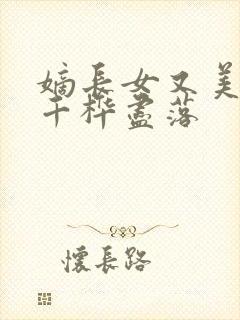 嫡長女又美
千樺盡落
懷長路